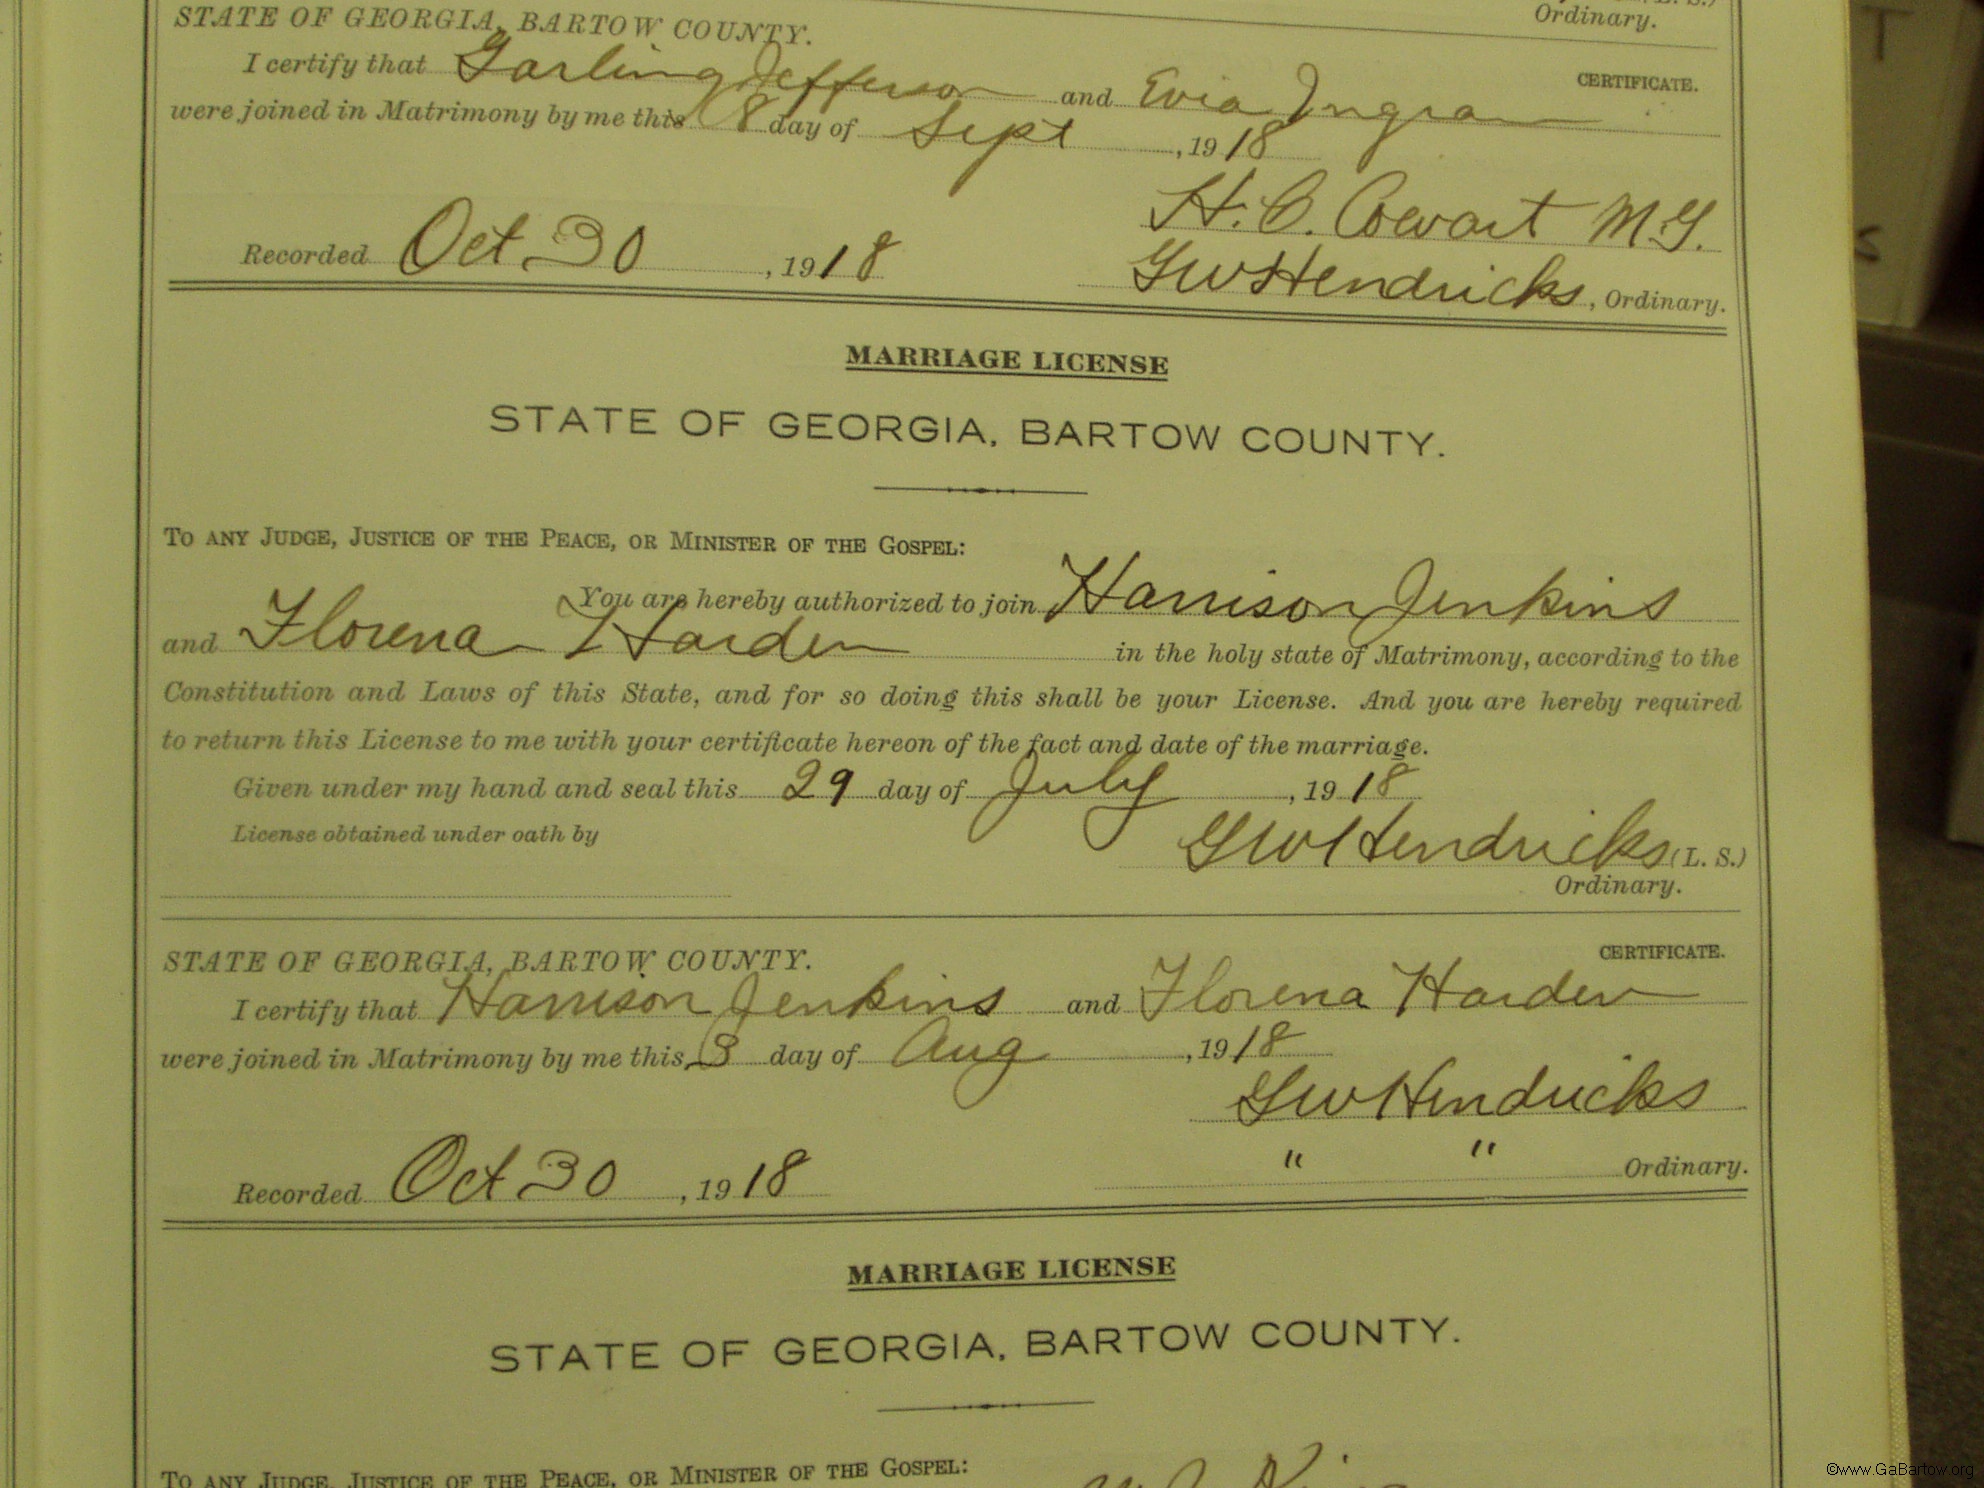 Ordinary.
STATE OF GEORGIA, BARTOW COUNTY.
CERTIFICATE.
I certify that Garling Jefferson and Evia Ingram
were joined in Matrimony by me this 8 day of Sept, 1918
H. C. Cowart M.G.
Recorded Oct 30, 1918 GW Hendricks, Ordinary.
MARRIAGE LICENSE
STATE OF GEORGIA, BARTOW COUNTY.
TO ANY JUDGE, JUSTICE OF THE PEACE, OR MINISTER OF THE GOSPEL:
You are hereby authorized to join Harrison Jenkins
and Florena Harden in the holy state of Matrimony, according to the
Constitution and Laws of this State, and for so doing this shall be your License. And you are hereby required
to return this License to me with your certificate hereon of the fact and date of the marriage.
Given under my hand and seal this 29 day of July, 1918
License obtained under oath by
GW Hendricks (L. S.)
Ordinary.
STATE OF GEORGIA, BARTOW COUNTY.
CERTIFICATE.
I certify that Harrison Jenkins and Florena Harden
were joined in Matrimony by me this 3 day of Aug, 1918
GW Hendricks
Recorded Oct 30, 1918 " " Ordinary.
MARRIAGE LICENSE
STATE OF GEORGIA, BARTOW COUNTY.
TO ANY JUDGE, JUSTICE OF THE PEACE, OR MINISTER OF THE GOSPEL:
©www.GaBartow.org